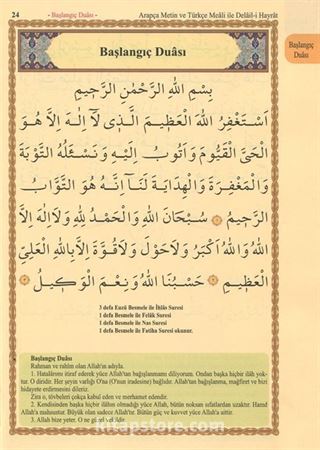 24
- Başlangıç Duâsı -
Arapça Metin ve Türkçe Meâli ile Delâil-i Hayrât
Başlangıç
Duâsı
Başlangıç Duâsı
بِسْمِ اللهِ الرَّحْمٰنِ الرَّحِيمِ
اَسْتَغْفِرُ اللهَ الْعَظِيمَ الَّذِى لَآ اِلٰهَ اِلَّا هُوَ
الْحَىَّ الْقَيُّومَ وَاَتُوبُ اِلَيْهِ وَنَسْئَلُهُ التَّوْبَةَ
وَالْمَغْفِرَةَ وَالْهِدَايَةَ لَنَا اِنَّهُ هُوَ التَّوَّابُ
الرَّحِيمُ سُبْحَانَ اللهِ وَالْحَمْدُ لِلّٰهِ وَلَا اِلٰهَ اِلَّا
اللهُ وَاللهُ اَكْبَرُ وَلَاحَوْلَ وَلَاقُوَّةَ اِلَّا بِاللهِ الْعَلِىِّ
الْعَظِيمِ حَسْبُنَا اللهُ وَنِعْمَ الْوَكِيلُ
3 defa Euzü Besmele ile İhlâs Suresi
1 defa Besmele ile Felâk Suresi
1 defa Besmele ile Nas Suresi
1 defa Besmele ile Fatiha Suresi okunur.
Başlangıç Duâsı
Rahman ve rahîm olan Allah'ın adıyla.
1. Hatalârımı itiraf ederek yüce Allah'tan bağışlanmamı diliyorum. Ondan başka hiçbir ilâh yok-
tur. O diridir. Her şeyin varlığı O'na (O'nun iradesine) bağlıdır. Allah'tan bağışlanma, mağfiret ve bizi
hidayete erdirmesini dileriz.
Zira o, tövbeleri çokça kabul eden ve merhamet edendir.
2. Kendisinden başka hiçbir ilâhın olmadığı yüce Allah, bütün noksan sıfatlardan uzaktır. Hamd
Allah'a mahsustur. Büyük olan sadece Allah'tır. Bütün güç ve kuvvet yüce Allah'a aittir.
3. Allah bize yeter. O ne güzel vekildir.
kitapstore.com